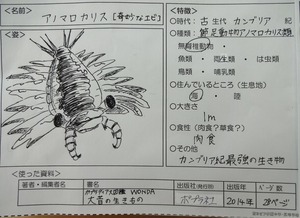 <名前>
アノマロカリス [奇妙なエビ]
<姿>
<特徴>
◇時代: 古生代 カンブリア 紀
◇種類: 節足動物アノマロカリス類
無脊椎動物・
魚類・両生類・は虫類
鳥類・哺乳類
◇住んでいるところ(生息地)
海・陸
◇大きさ
1m
◇食性(肉食?草食?)
肉食
◇その他
カンブリア紀最強の生き物
<使った資料>
著者・編集者名
書名
出版社(発行所)
出版年
ページ数
WONDA
大昔の生きもの
ポプラ社
2014年
28ページ